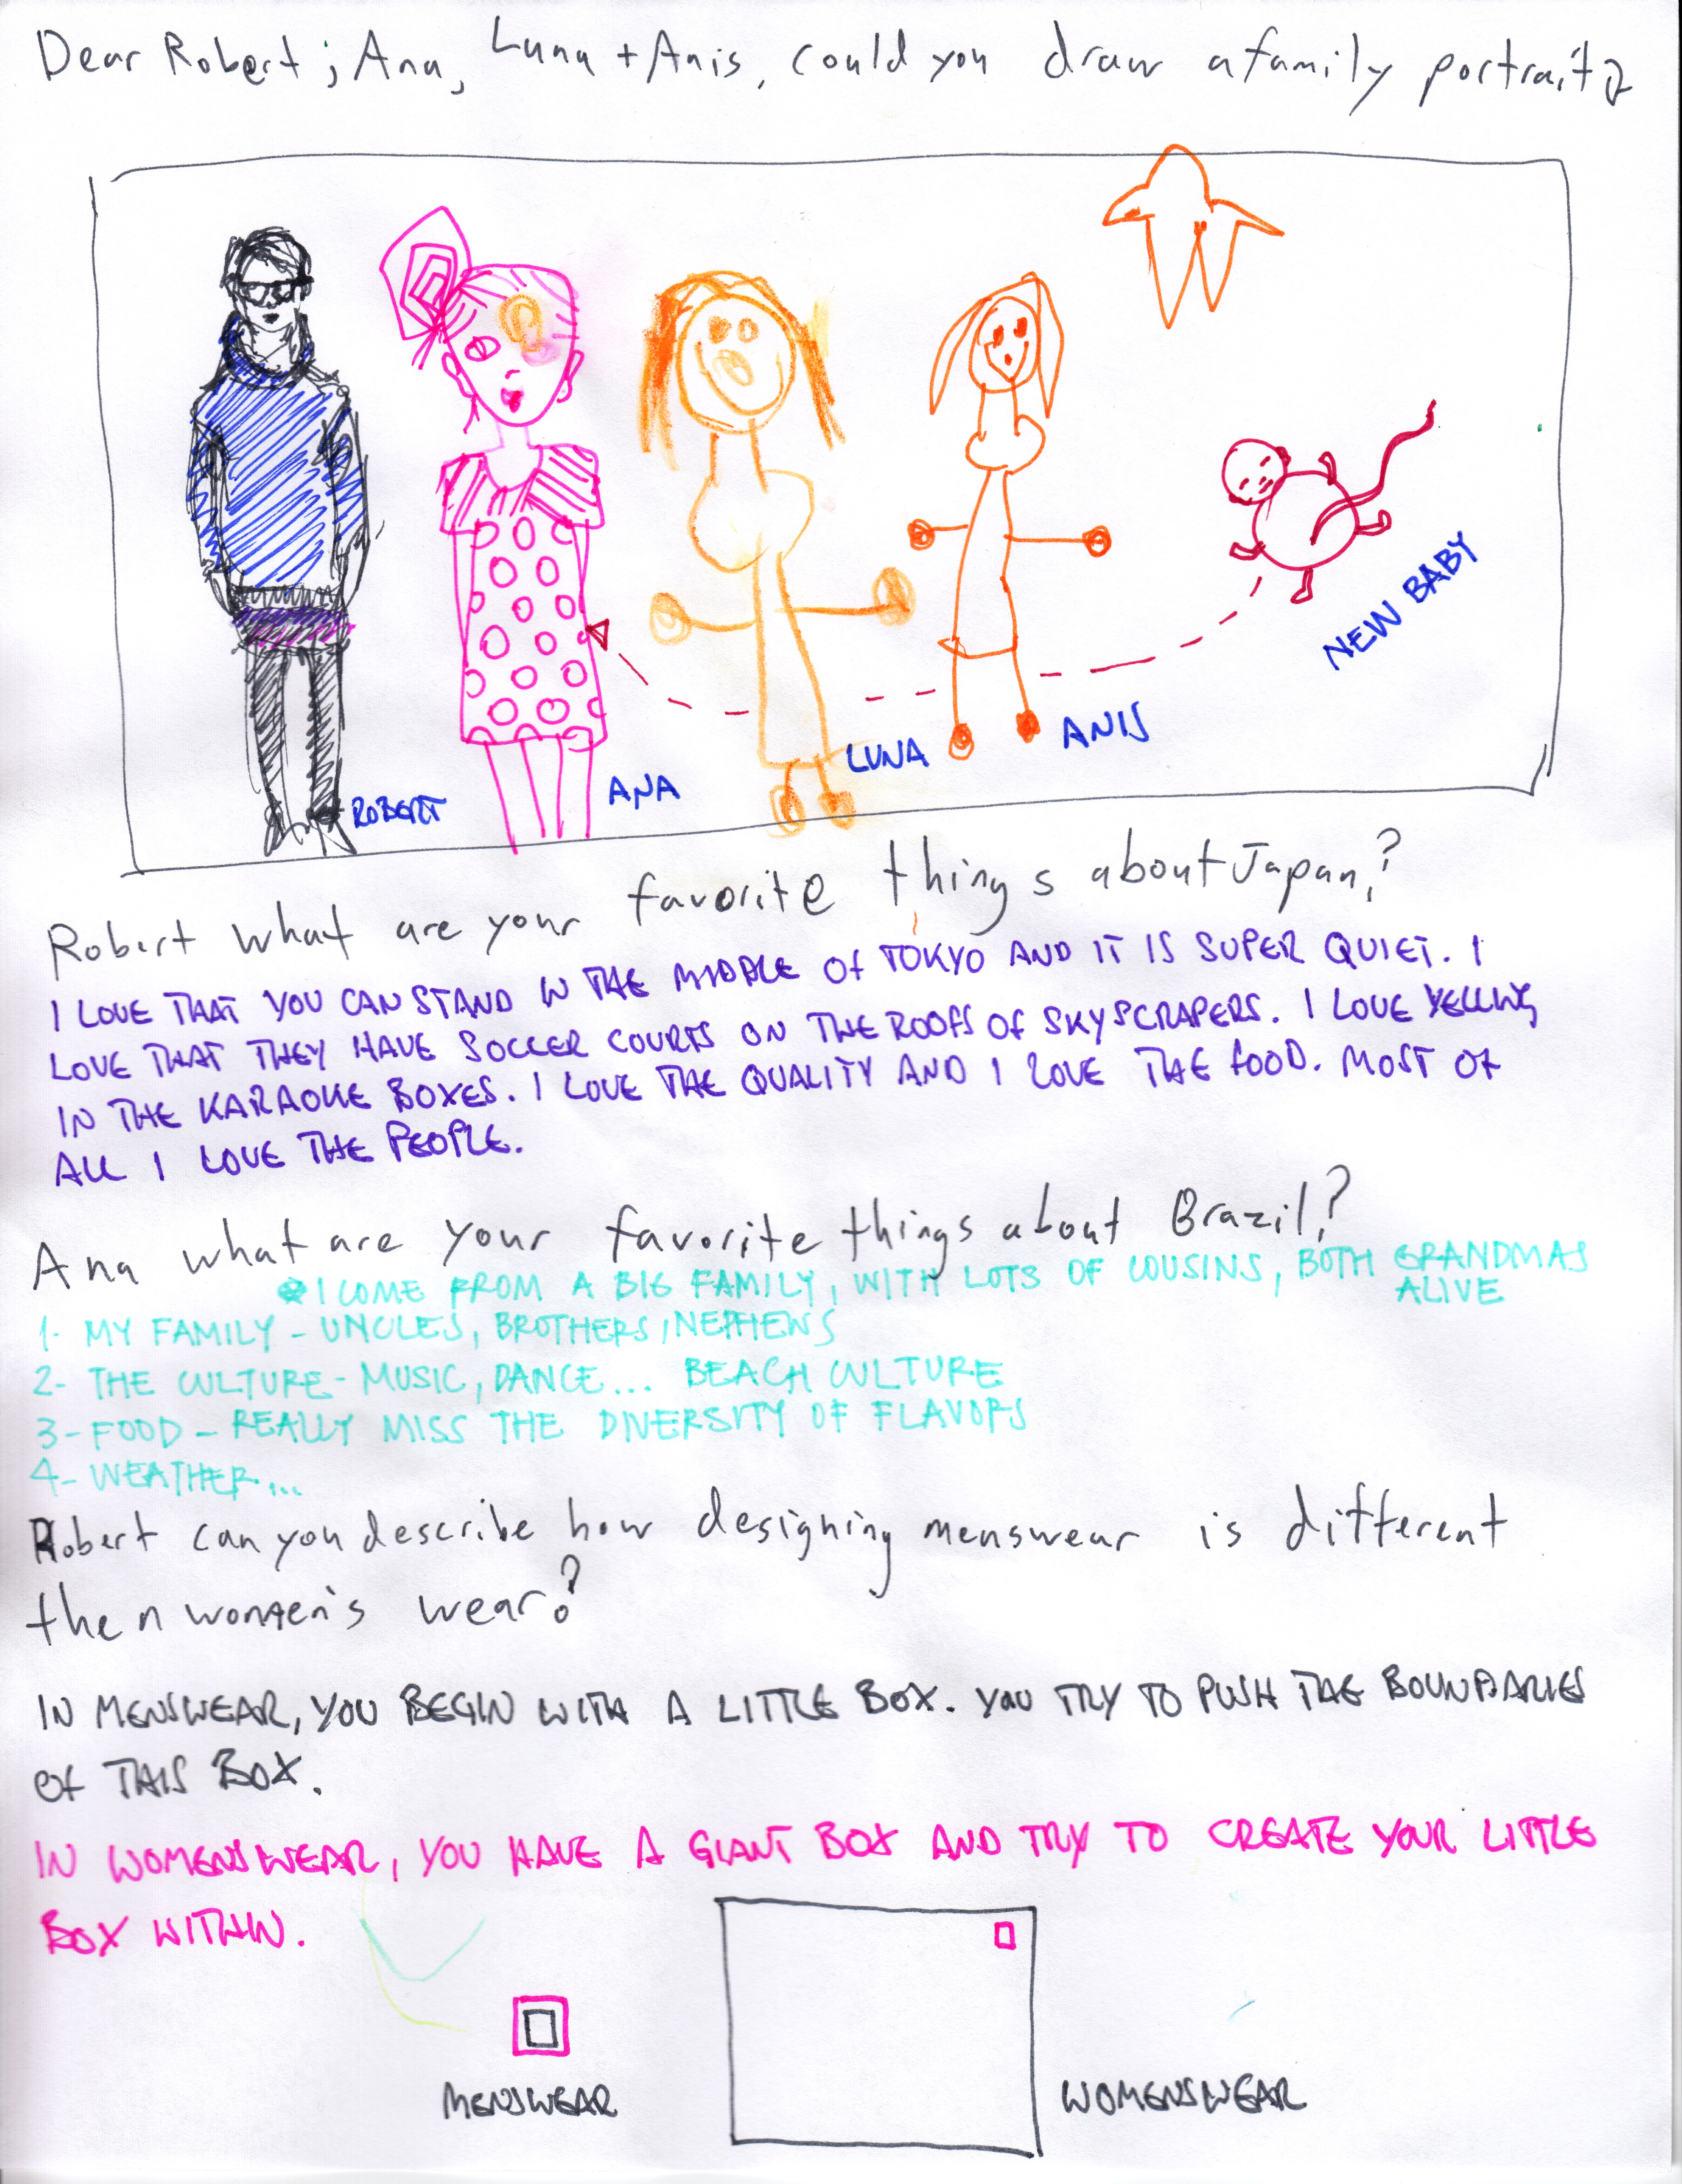 Dear Robert; Ana, Luna + Anis, could you draw a family portrait?
ROBERT
ANA
LUNA
ANIS
NEW BABY
Robert what are your favorite things about Japan?
I LOVE THAT YOU CAN STAND IN THE MIDDLE Of TOKYO AND IT IS SUPER QUIET. I
LOVE THAT THEY HAVE SOCCER COURTS ON THE ROOFS Of SKYSCRAPERS. I LOVE YELLING
IN THE KARAOKE BOXES. I LOVE THE QUALITY AND I LOVE THE fOOD. MOST Of
ALL I LOVE THE PEOPLE.
Ana what are your favorite things about Brazil?
I COME FROM A BIG FAMILY, WITH LOTS OF COUSINS, BOTH GRANDMAS
ALIVE
1- MY FAMILY - UNCLES, BROTHERS, NEPHEWS
2- THE CULTURE - MUSIC, DANCE... BEACH CULTURE
3- FOOD - REALLY MISS THE DIVERSITY OF FLAVORS
4- WEATHER...
Robert can you describe how designing menswear is different
then women's wear?
IN MENSWEAR, YOU BEGIN WITH A LITTLE BOX. YOU TRY TO PUSH THE BOUNDARIES
Of THIS BOX.
IN WOMENSWEAR, YOU HAVE A GIANT BOX AND TRY TO CREATE YOUR LITTLE
BOX WITHIN.
MENSWEAR
WOMENSWEAR